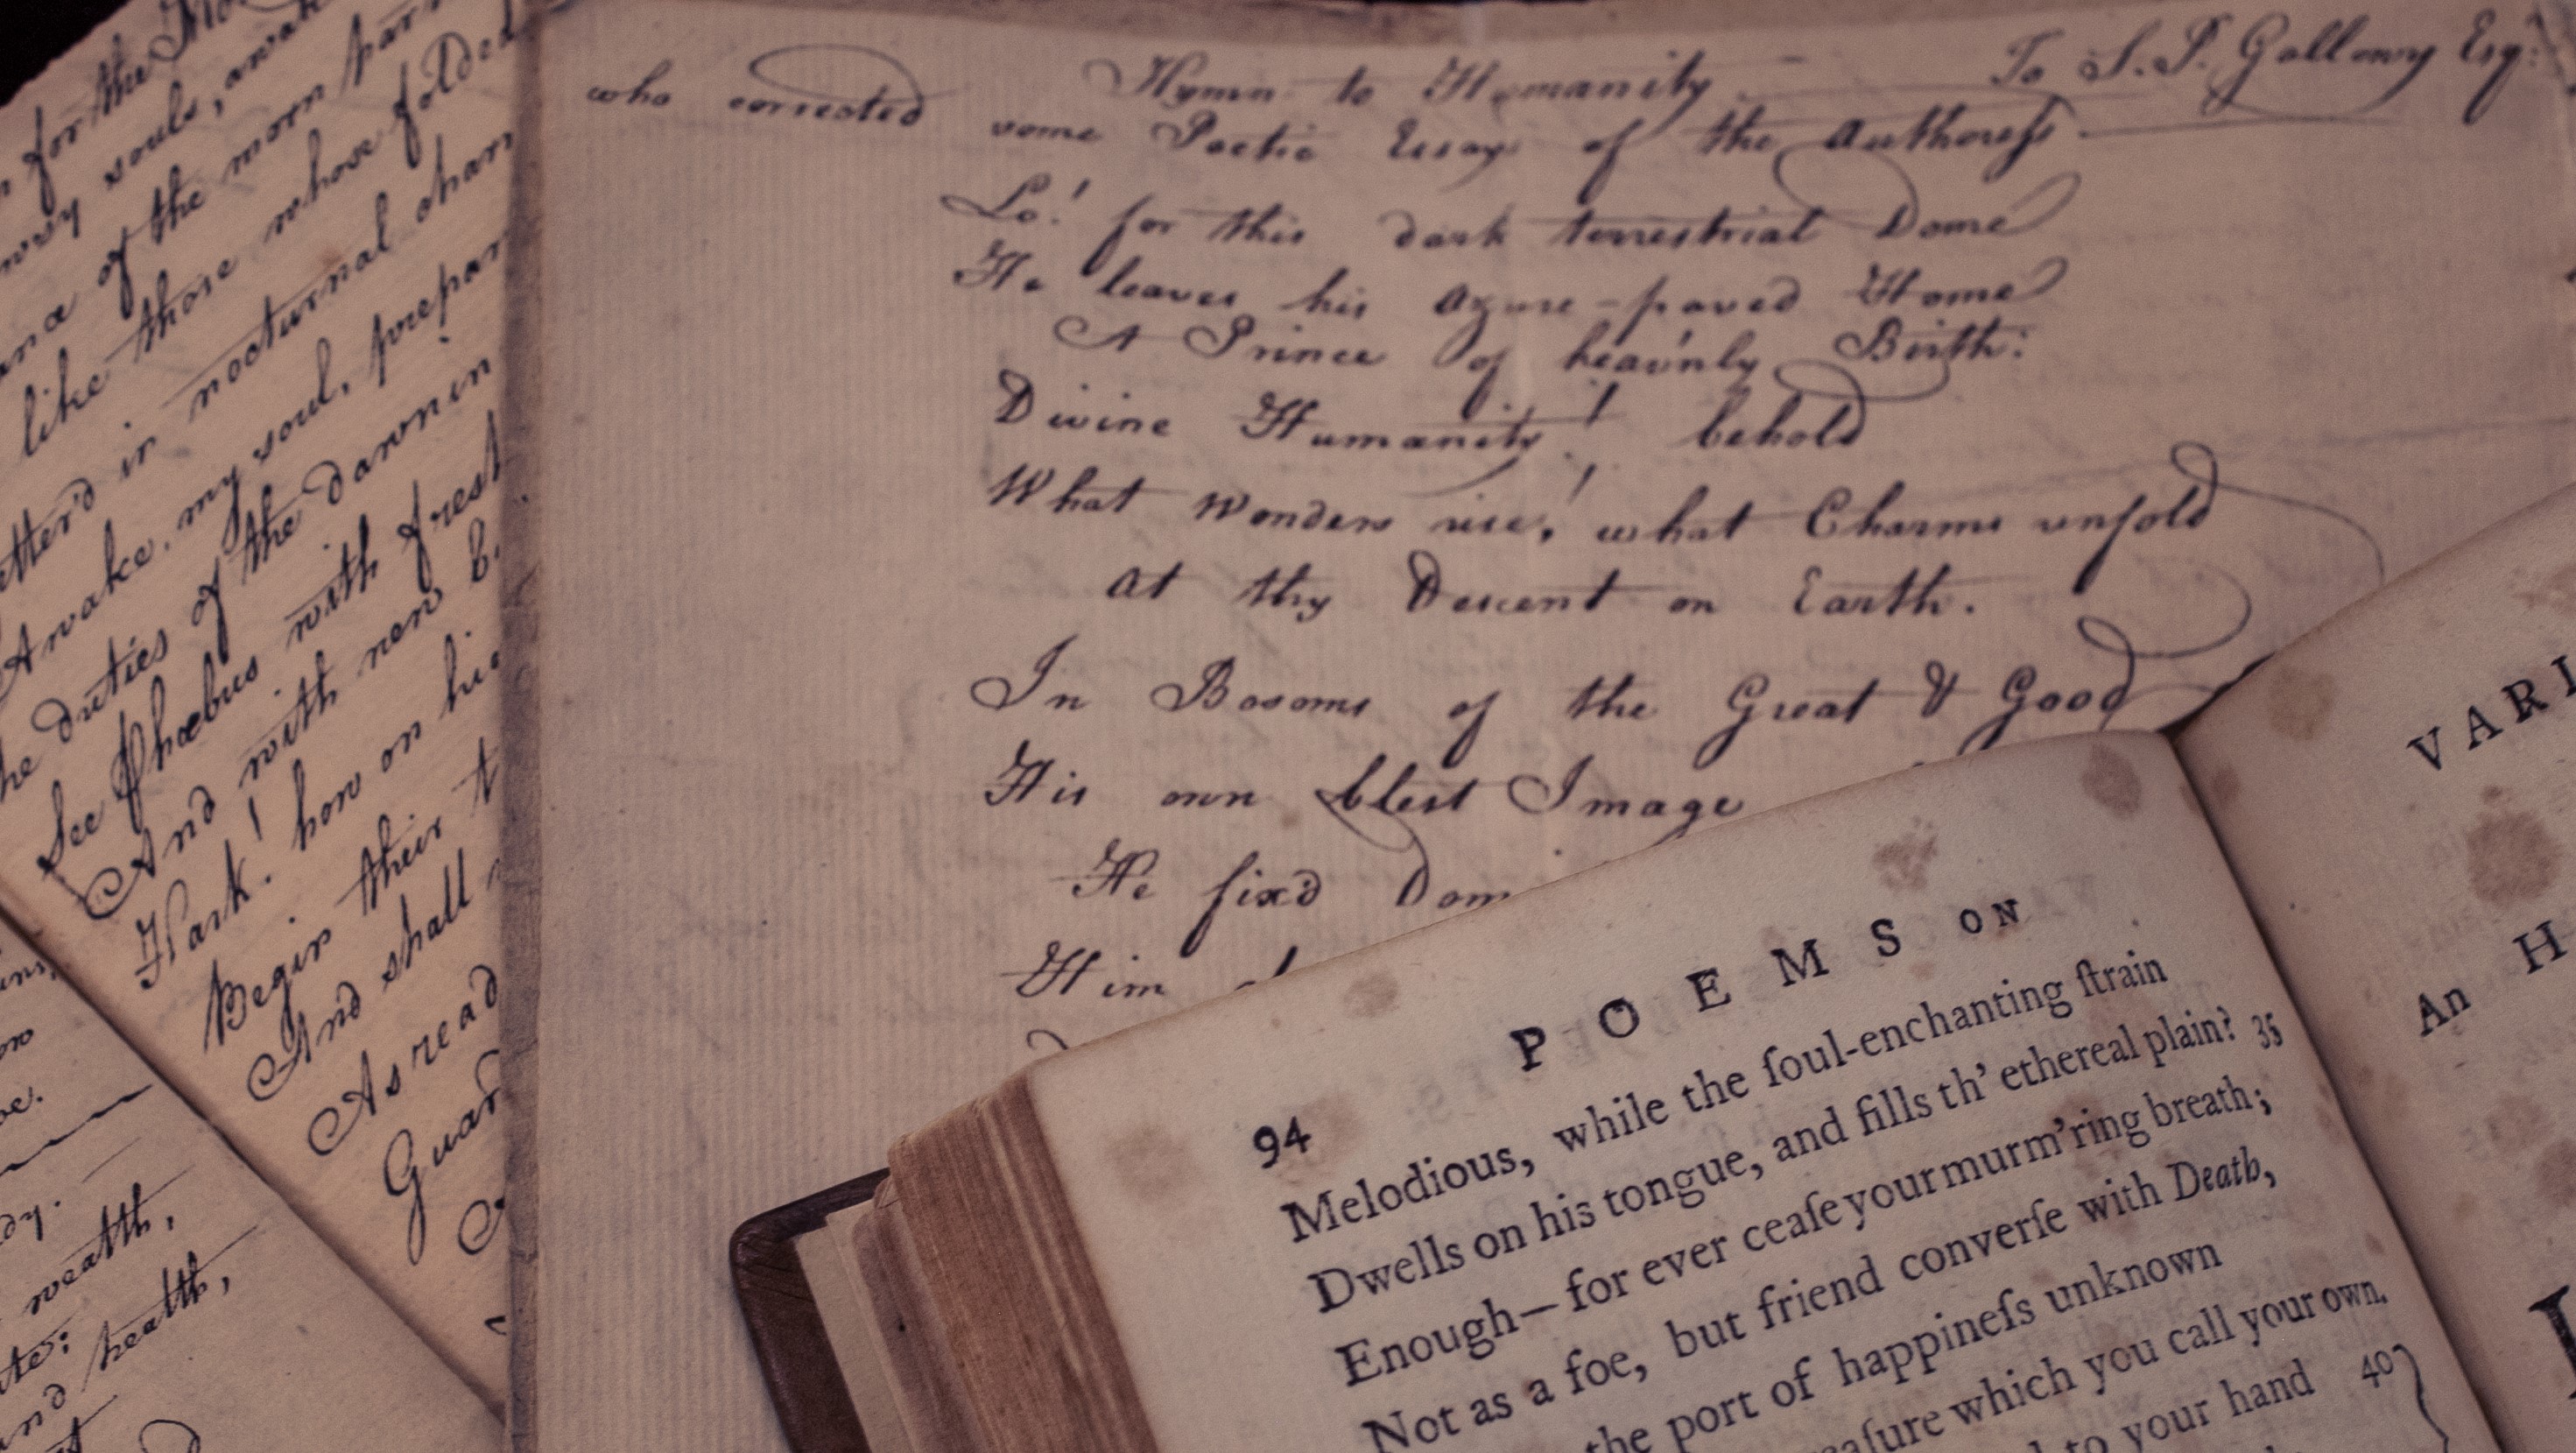 for the
souls, awak
of the morn
like those whose folded
in nocturnal
Awake, my soul,
duties of the
See Phœbus with
And with new
Hark! how on his
Begin their
And shall
As read
wealth,
health,
Hymn to Humanity To S. P. Galloway Esq:
who corrected some Poetic Essays of the Authoreſs
Lo! for this dark terrestrial Dome
He leaves his Azure-paved Home
A Prince of heav'nly Birth:
Divine Humanity! behold
What Wonders rise! what Charms unfold
At thy Descent on Earth.
In Bosoms of the Great & Good
His own blest Image
He fix'd
Him
94 POEMS ON
Melodious, while the ſoul-enchanting ſtrain
Dwells on his tongue, and fills th' ethereal plain? 35
Enough—for ever ceaſe your murm'ring breath;
Not as a foe, but friend converſe with Death,
the port of happineſs unknown
which you call your own.
to your hand 40
VARI
An H